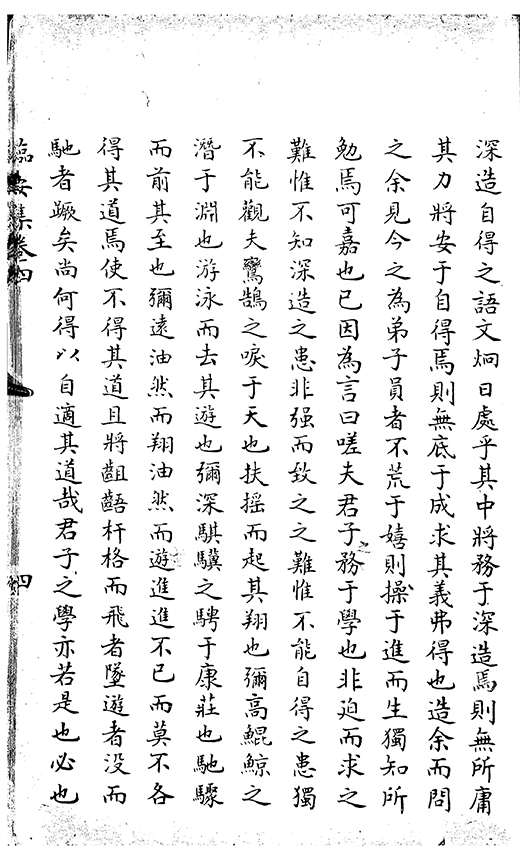 深造自得之語文炯日處乎其中將務于深造焉則無所庸
其力將安于自得焉則無底于成求其義弗得也造余而問
之余見今之為弟子員者不荒于嬉則操于進而生獨知所
勉焉可嘉也已因為言曰嗟夫君子之務于學也非迫而求之
難惟不知深造之患非强而致之之難惟不能自得之患獨
不能觀夫鸞鵠之唳于天也扶搖而起其翔也彌高鯤鯨之
潛于淵也游泳而去其遊也彌深騏驥之騁于康莊也馳驟
而前其至也彌遠油然而翔油然而遊進進不已而莫不各
得其道焉使不得其道且將齟齬杆格而飛者墜遊者没而
馳者蹶矣尚何得以自適其道哉君子之學亦若是也必也
臨安集卷四
四